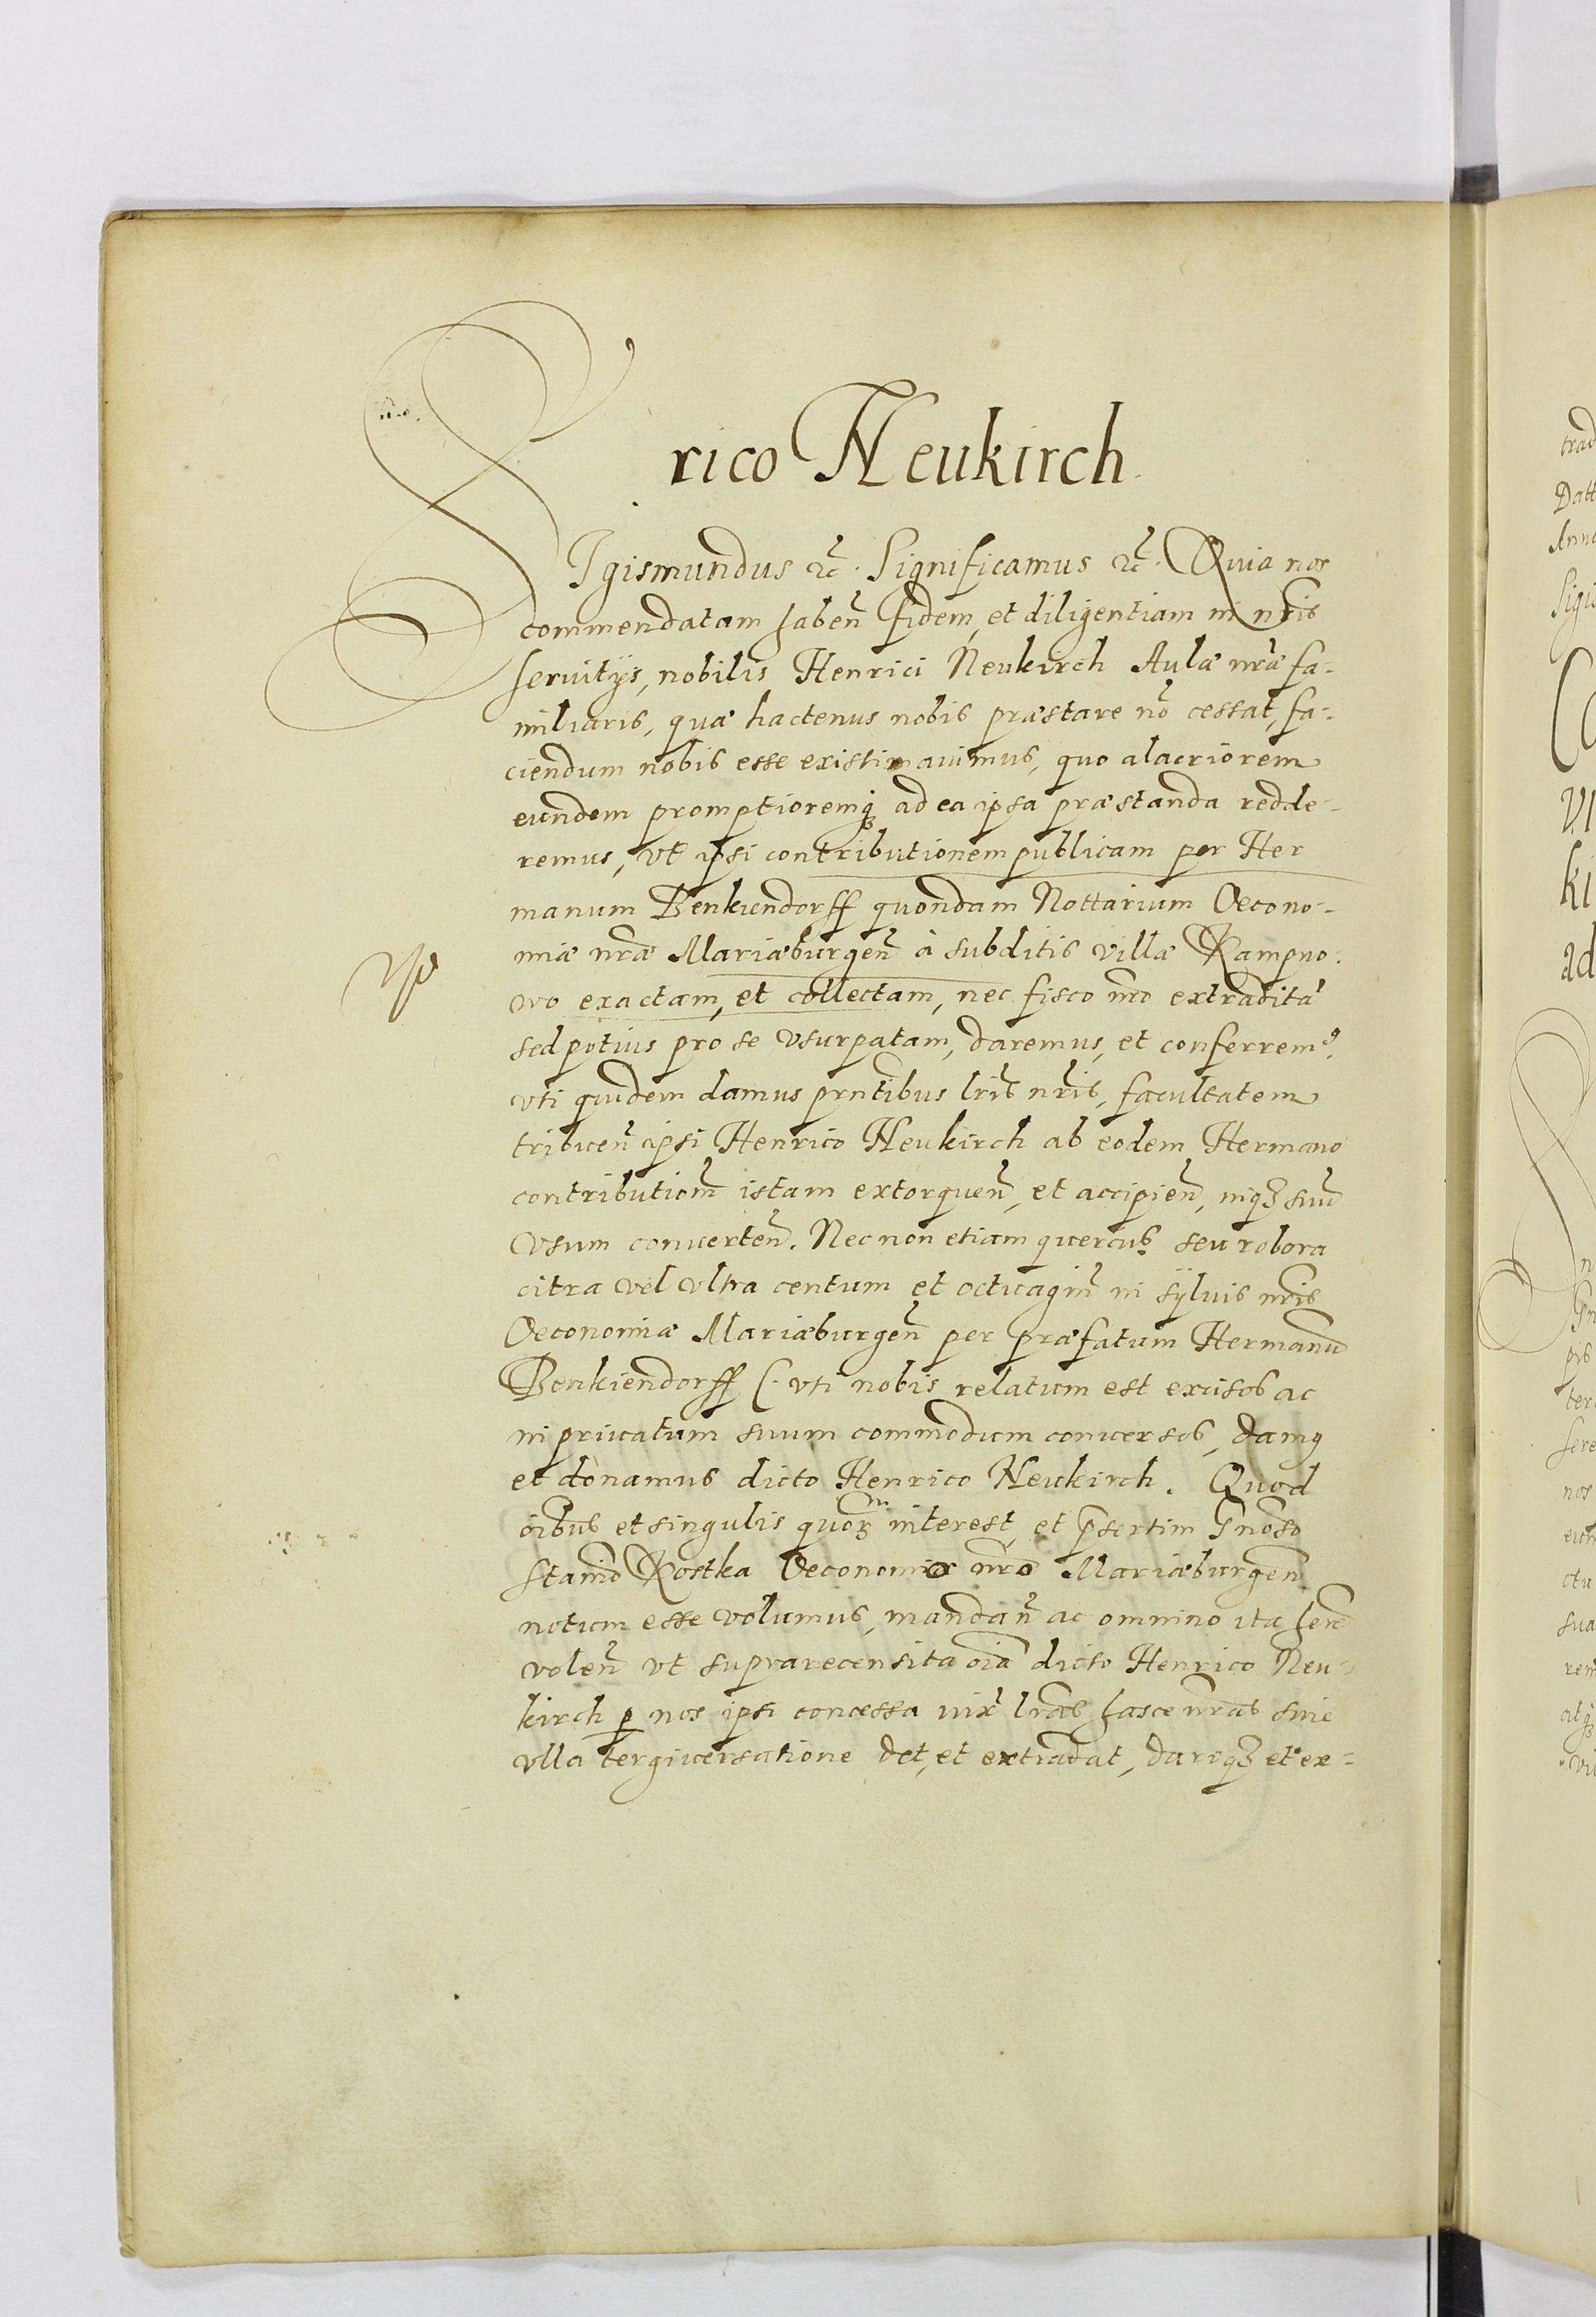 rico Neukirch.
SIgismundus etc̃. Significamus etc̃. Quia nos
commendatam haben̄ fidem, et diligentiam in nr̄is
seruitijs, nobilis Henrici Neukirch Aulæ nr̄æ fa-
miliaris, quæ hactenus nobis præstare nō cessat, fa-
ciendum nobis esse existimauimus, quo alacriorem
eundem promptioremq₃ ad ea ipsa præstanda redde-
remus, vt ipsi contributionem publicam per Her
manum Benkiendorff quondam Nottarium Oecono-
miæ nr̄æ Mariæburgen̄ à subditis villæ Kampno-
wo exactam, et collectam, nec fisco nr̄o extraditā
sed potius pro se vsurpatam, daremus, et conferremꝰ.
vti quidem damus prn̄tibus lr̄is nr̄is, facultatem
tribuen̄ ipsi Henrico Neukirch ab eodem Hermano
contribution̄ istam extorquen̄, et accipien̄, inq₃ suū
vsum conuerten̄. Nec non etiam quercus seu robora
citra vel vltra centum et octuagin̄ in syluis nr̄is
Oeconomiæ Mariæburgen̄ per præfatum Hermanū
Benkiendorff (. vti nobis relatum est excisos ac
in priuatum suum commodum conuersos, damꝰ
et donamus dicto Henrico Neukirch. Quod
oībus et singulis quor₃ interest, et p̄sertim Gn̄oso
Stan̄io Kostka Oeconomo nr̄o Mariæburgen̄
notum esse volumus, mandan̄ ac omnino ita here
volen̄ vt suprarecensita oīa dicto Henrico Neu-
kirch ꝑ nos ipsi concessa iux̄ lr̄as hasce nr̄as sine
vlla tergiuersatione det, et extradat, dariq₃ et ex-
trad
Datt
Anno
ki
ad